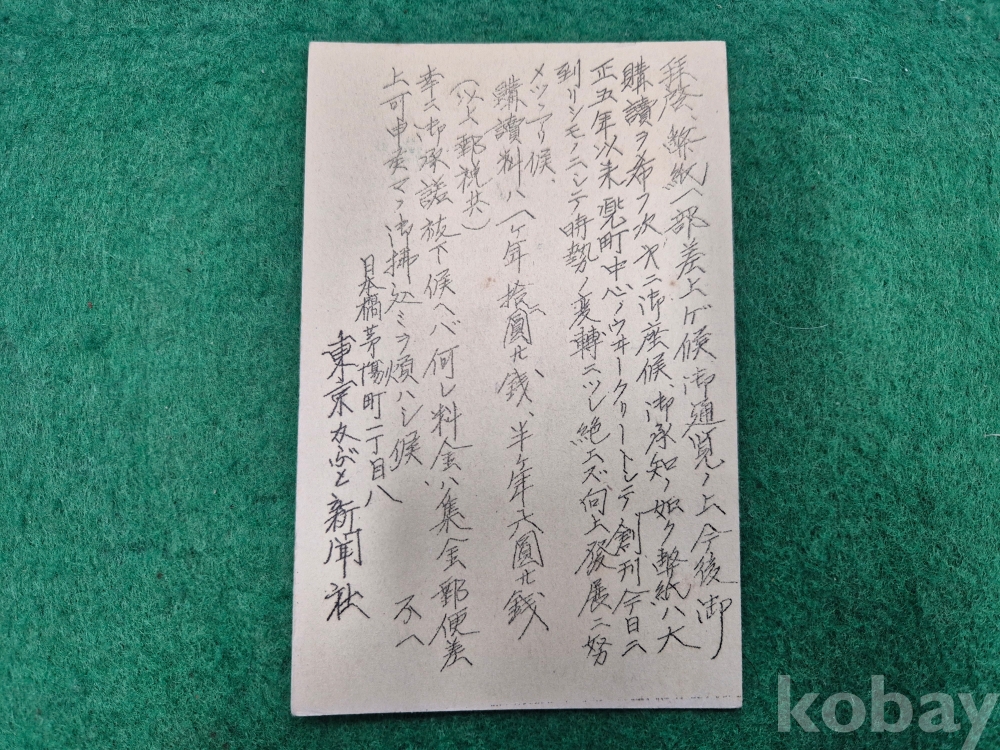 拝啓、弊紙一部差上ゲ候御通覧ノ上今後御
購讀ヲ希フ次第ニ御座候、御承知ノ如ク弊紙ハ大
正五年以来兜町中心ノウヰークリートシテ創刊今日ニ
到リシモノニシテ時勢ノ変轉ニツレ絶エズ向上發展ニ努
メツヽアリ候、
購讀料ハ一ケ年拾圓廿銭、半ケ年六圓廿銭
(以上郵税共)
幸ニ御承諾被下候ヘバ何レ料金ハ集金郵便差
上可申候マヽ御拂込ミヲ煩ハシ候
日本橋茅場町二丁目八
東京かぶと新聞社
kobay